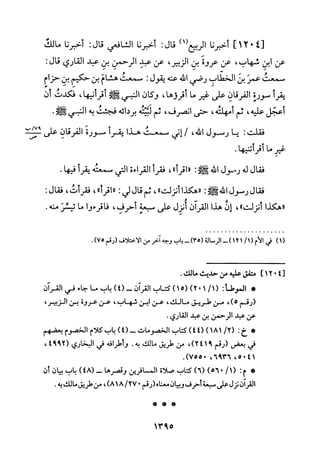 [١٢٠٤] أخبرنا الربيع(١) قال: أخبرنا الشافعي قال: أخبرنا مالك
عن ابن شهاب، عن عروة بن الزبير، عن عبد الرحمن بن عبد القاري قال:
سمعت عمرَ بنَ الخطَّاب رضي الله عنه يقول: سمعتُ هشامَ بن حكيم بن حزام
يقرأ سورة الفرقان على غير ما أقرؤها، وكان النبي ﷺ أقرأنيها، فكدت أن
أعجل عليه، ثم أمهلته، حتى انصرف، ثم لَبَّبْتُه بردائه فجئتُ به النبي ﷺ.
فقلت: يا رسول الله، / إني سمعت هذا يقرأ سورة الفرقان على
غير ما أقرأتنيها.
فقال له رسول الله ﷺ: «اقرأ»، فقرأ القراءة التي سمعته يقرأ فيها.
فقال رسول الله ﷺ: «هكذا أنزلت»، ثم قال لي: «اقرأ»، فقرأت، فقال:
«هكذا أنزلت، إنَّ هذا القرآن أنزل على سبعة أحرف، فاقرءوا ما تيسَّر منه.
(١) في الأم (١/ ١٢١) ــ الرسالة (٣٥) ــ باب وجه آخر من الاختلاف (رقم ٧٥).
[١٢٠٤] متفق عليه من حديث مالك.
* الموطأ: (١/ ٢٠١) (١٥) كتاب القرآن ــ (٤) باب ما جاء في القرآن
(رقم ٥)، من طريق مالك، عن ابن شهاب، عن عروة بن الزبير،
عن عبد الرحمن بن عبد القاري.
* خ: (٢/ ١٨١) (٤٤) كتاب الخصومات ــ (٤) باب كلام الخصوم بعضهم
في بعض (رقم ٢٤١٩)، من طريق مالك به. وأطرافه في البخاري (٤٩٩٢،
٥٠٤١، ٦٩٣٦، ٧٥٥٠).
* م: (١/ ٥٦٠) (٦) كتاب صلاة المسافرين وقصرها ــ (٤٨) باب بيان أن
القرآن نزل على سبعة أحرف وبيان معناه (رقم ٢٧٠/ ٨١٨)، من طريق مالك به.
* * *
١٣٩٥